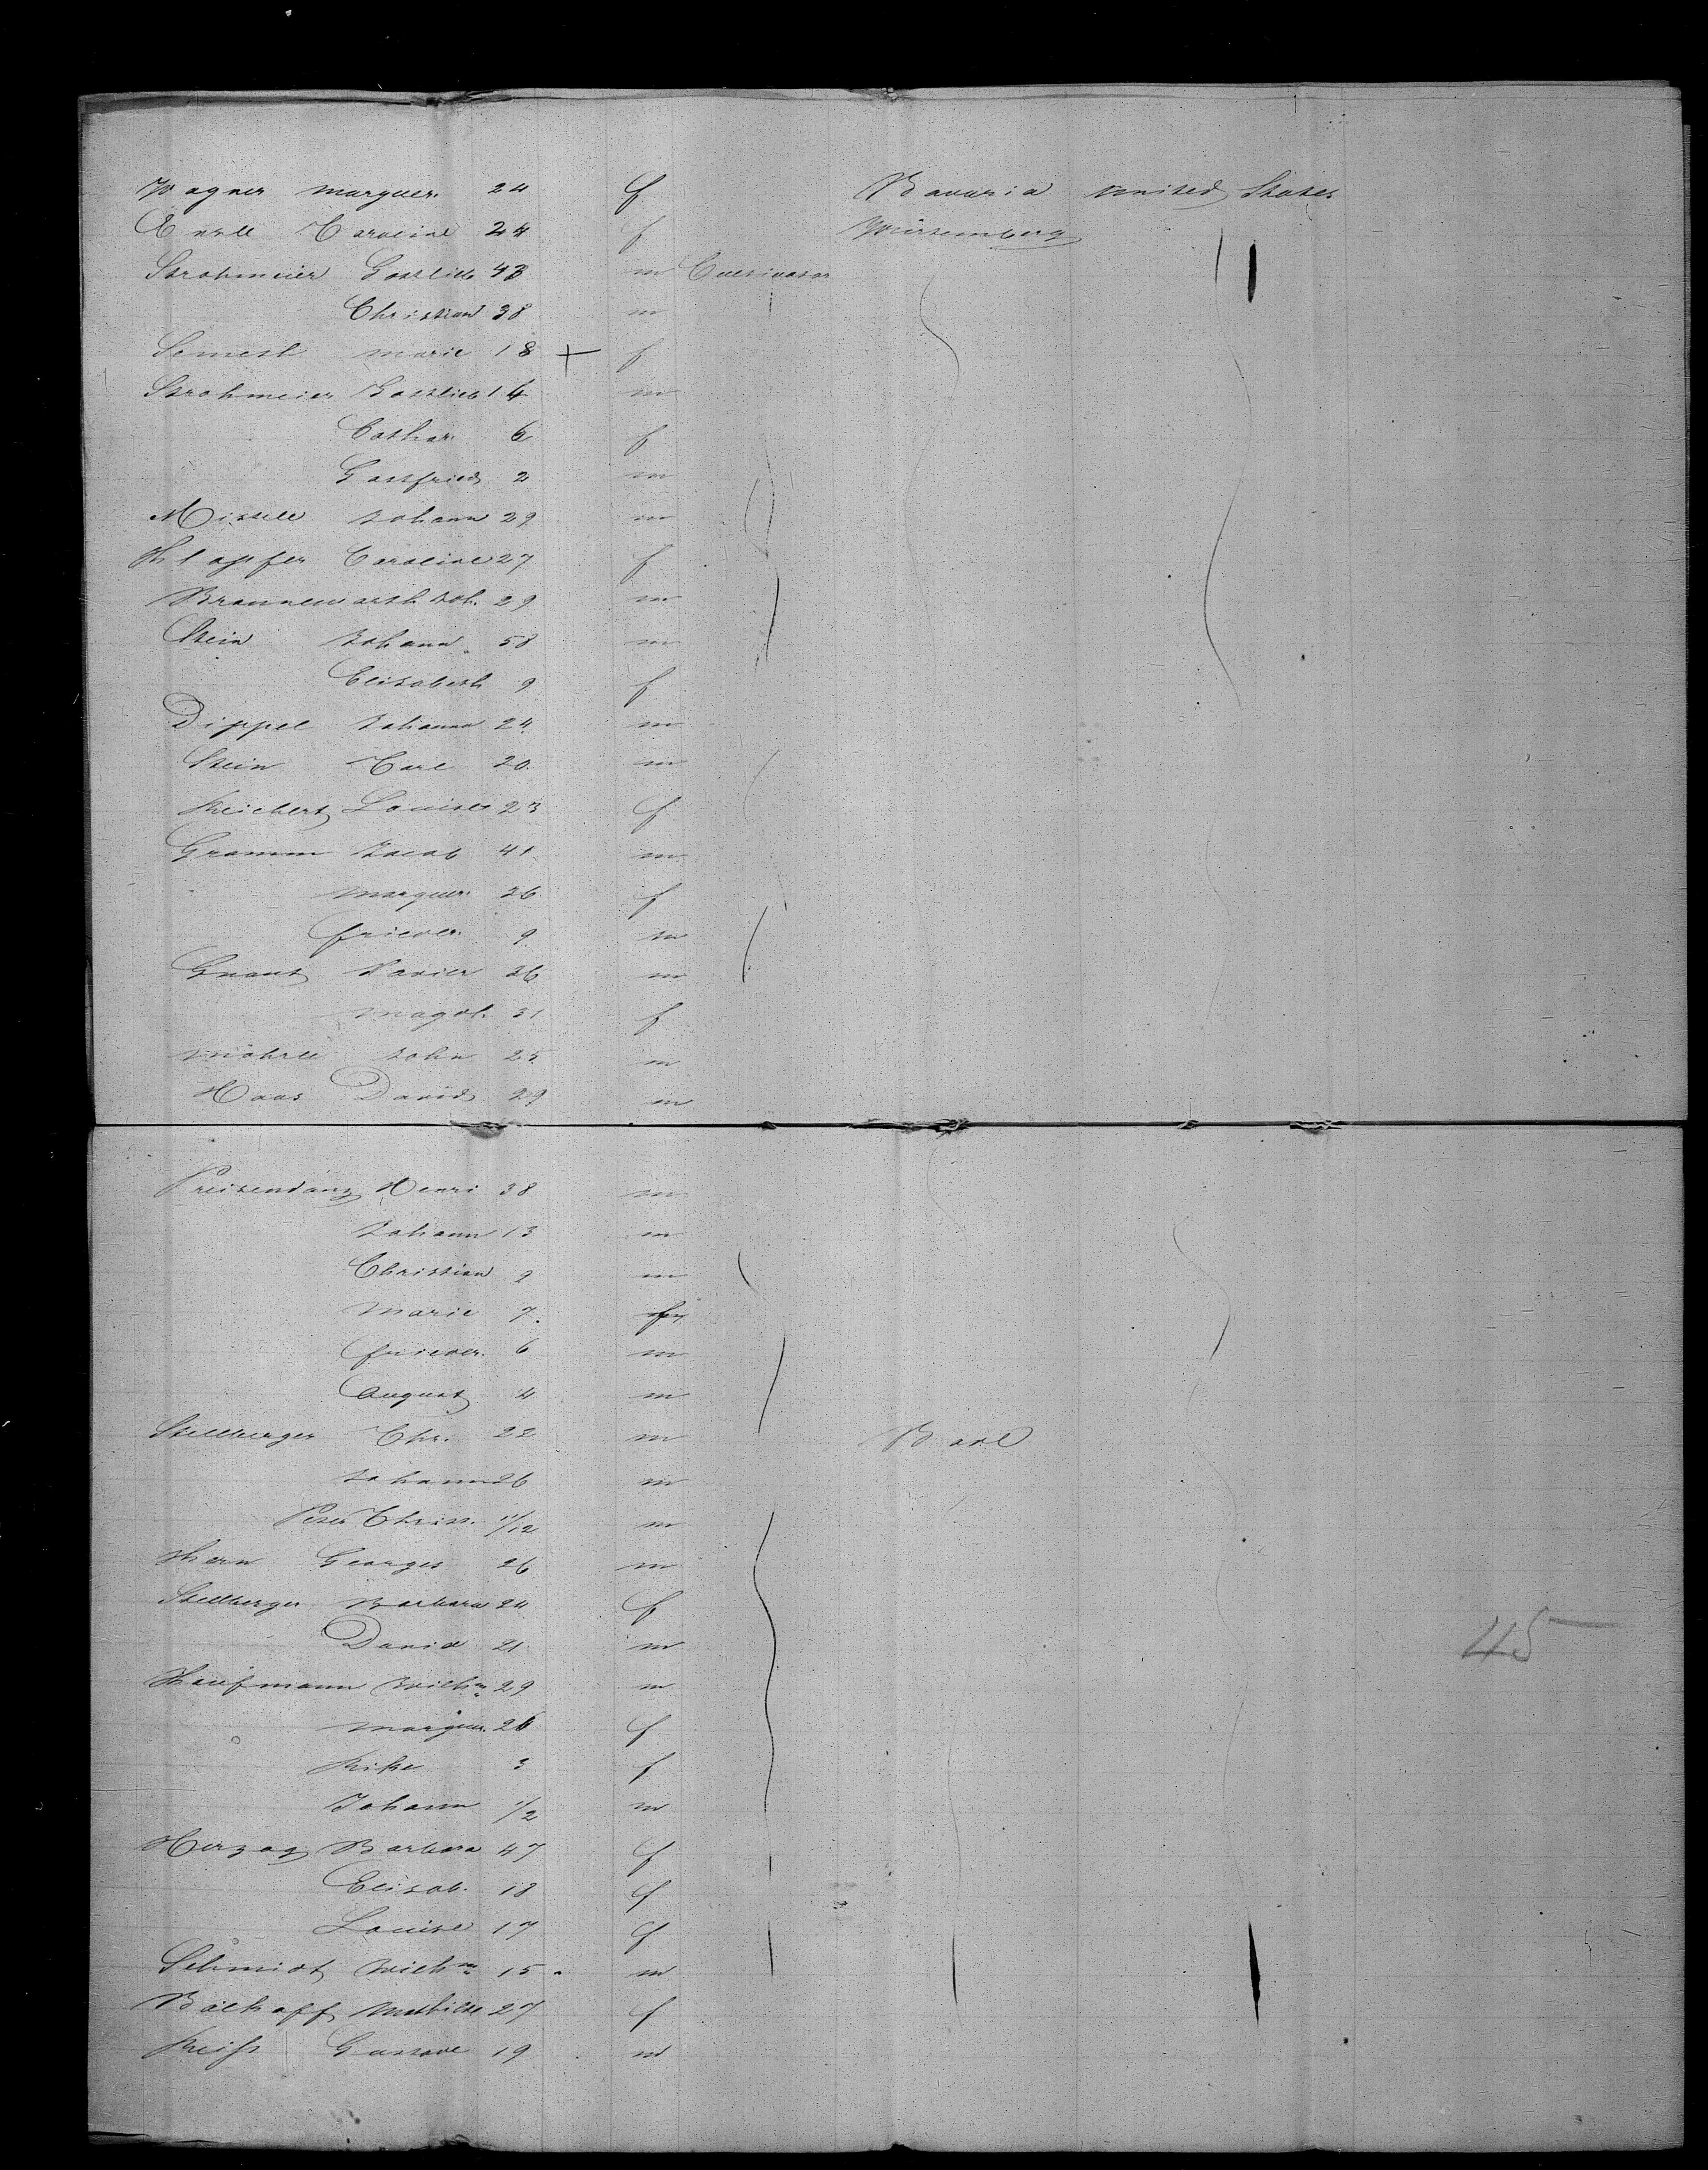 Wagner Marguer. 24 f Bavaria United States
Caroline 24 f Würtemberg
Strohmeier Gottlieb 43 m Cultivator
Christian 38 m
Marie 18 + f
Strohmeier Gottlieb 14 m
Cathar. 6 f
Gottfried 2 m
Johann 29 m
Klopfer Caroline 27 f
Brannewarth Joh. 29 m
Stein Johann 58 m
Elisabeth 9 f
Dippel Johann 24 m
Stein Carl 20 m
Reichert Louise 23 f
Gramm Jacob 41 m
Marguer. 26 f
Frieder. 9 m
Xavier 36 m
Magd. 31 f
Möhrle John 25 m
Haas David 29 m
Preisendanz Henri 38 m
Johann 13 m
Christian 9 m
Marie 7
Frieder. 6 m
August 4 m
Stellberger Chr. 22 m Bade
Johann 26 m
Peter Christ. 11/12 m
Kern Georges 26 m
Stellberger Barbara 24 f
David 21 m
Kaufmann Wilhm 29 m
Marguer. 26 f
Rike 3 f
Johann 1/2 m
Herzog Barbara 47 f
Elisab. 18 f
Louise 17 f
Schmidt Wilhm 15 m
Bälhoff Mathilde 27 f
Reiss Gustave 19 m
45